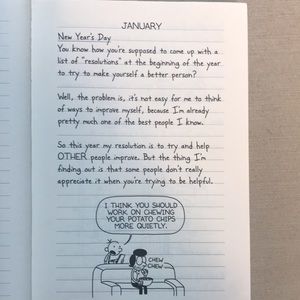 JANUARY
New Year's Day
You know how you're supposed to come up with a
list of "resolutions" at the beginning of the year
to try to make yourself a better person?
Well, the problem is, it's not easy for me to think
of ways to improve myself, because I'm already
pretty much one of the best people I know.
So this year my resolution is to try and help
OTHER people improve. But the thing I'm
finding out is that some people don't really
appreciate it when you're trying to be helpful.
I THINK YOU SHOULD
WORK ON CHEWING
YOUR POTATO CHIPS
MORE QUIETLY.
CHEW
CHEW